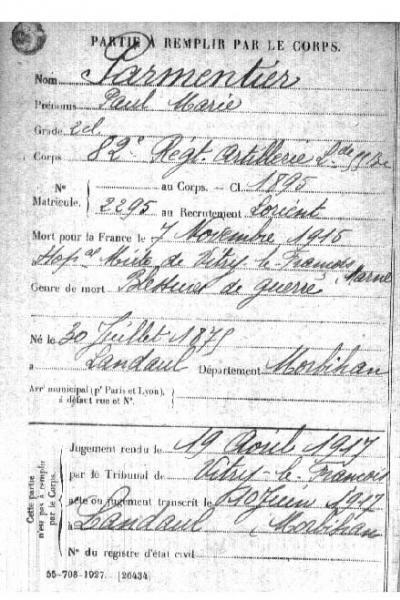 PARTIE À REMPLIR PAR LE CORPS.
Nom Parmentier
Prénoms Paul Marie
Grade 2d
Corps 82e Régt. Artillerie Lde
N° au Corps. — Cl. 1895
Matricule. 2295 au Recrutement Lorient
Mort pour la France le 7 Novembre 1915
Hopal Mixte de Vitry-le-François Marne
Genre de mort Blessures de guerre
Né le 30 Juillet 1875
à Landaul Département Morbihan
Arrt municipal (pr Paris et Lyon),
à défaut rue et N°.
Cette partie n'est pas à remplir par le Corps.
Jugement rendu le 19 Avril 1917
par le Tribunal de Vitry-le-François
acte ou jugement transcrit le 10 Juin 1917
à Landaul Morbihan
N° du registre d'état civil
55-708-1927. [26434]